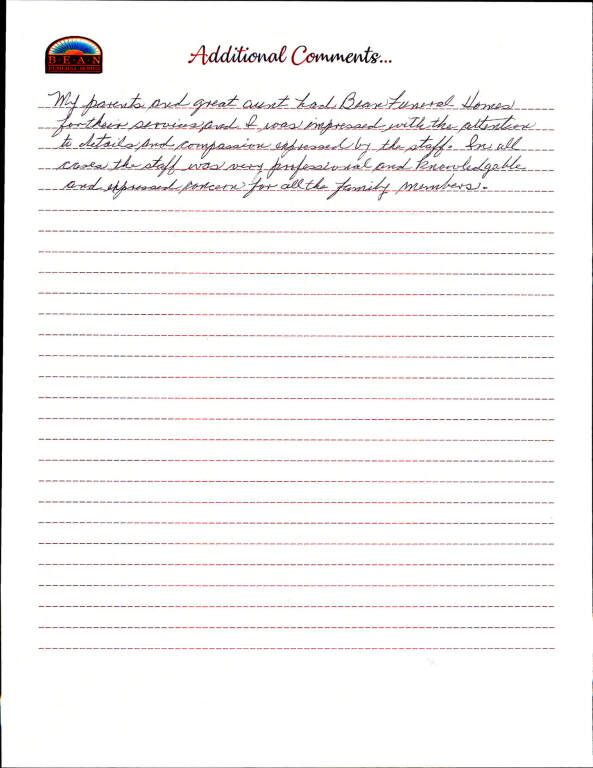 BEAN
FUNERAL HOMES
Additional Comments...
My parents and great aunt had Bean Funeral Homes
for their services, and I was impressed with the attention
to details, and compassion expressed by the staff. In all
cases the staff was very professional and knowledgable
and expressed concern for all the family members.